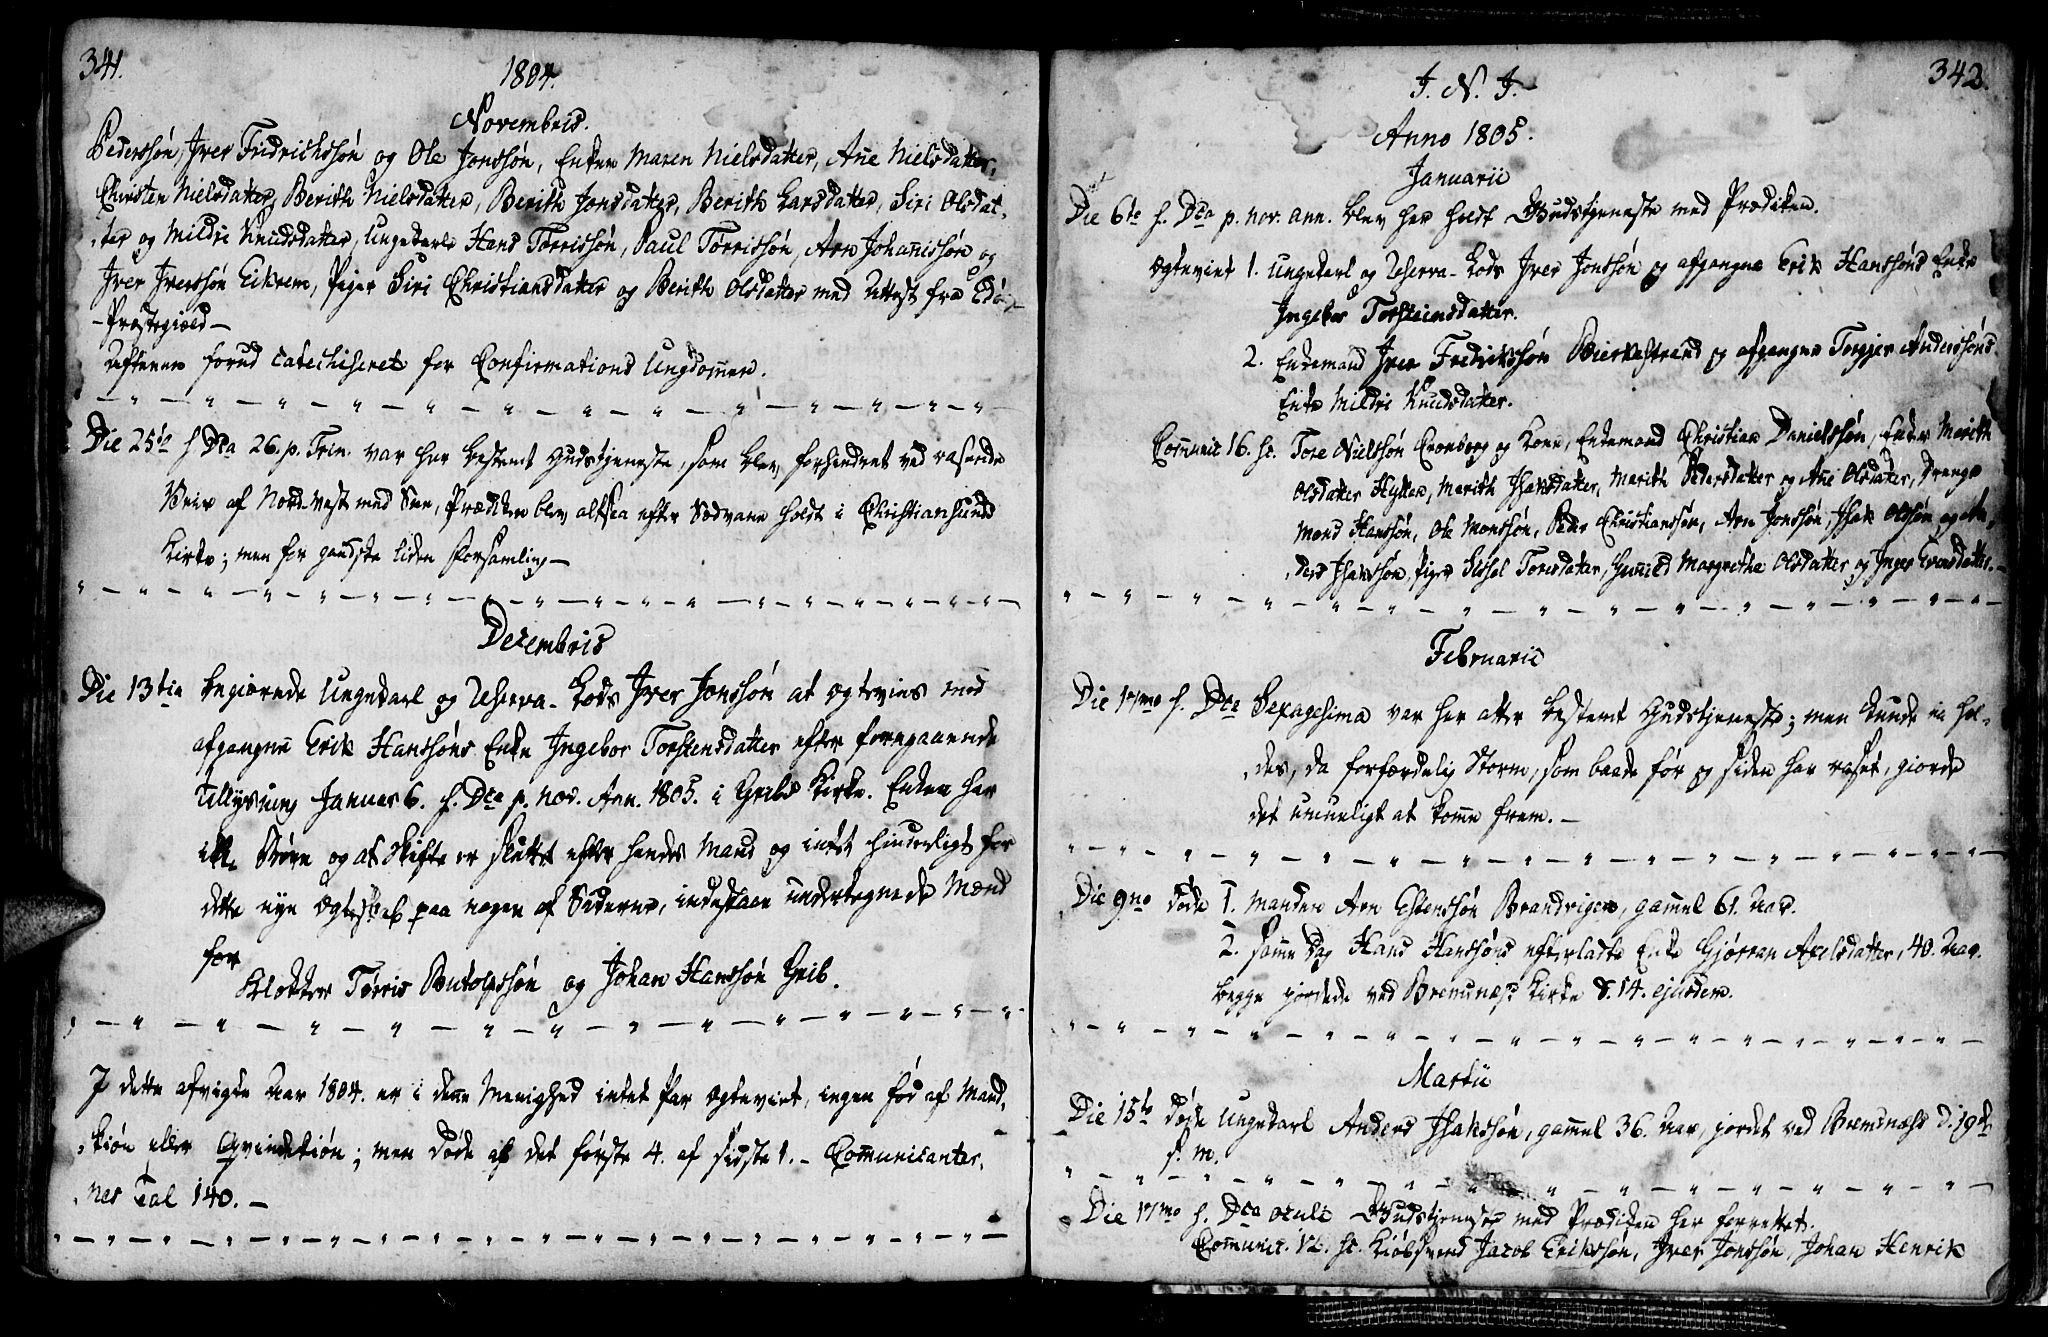 341.
1804.
Novembris.
Pederssøn, Iver Fridrichssøn og Ole Jonssøn, Enken Maren Nielsdatter, Añe Nielsdatter,
Christen Nielsdatter, Berith Nielsdatter, Berith Jonsdatter, Berith Larsdatter, Siri Olsdat-
ter og Mildri Knudsdatter, Ungekarle Hans Tørrissøn, Paul Tørrissøn, Arn Johañissøn og
Iver Iverssøn Eikrem, Piger Siri Christiansdatter og Berith Olsdatter med Attest fra Edøe
Præstegield —
Aftenen forud catechiseret for Confirmations Ungdomen.
Die 25te f. Dca 26. p. Trin. var her bestemt Gudstjeneste, som blev forhindret ved rasende
Veir af Nord-Vest med Snee, Prædiken blev altsaa efter Sædvane holdt i Christiansunds
Kirke; men for gandske liden Forsamling —
Decembris
Die 13tia begiærede Ungekarl og Reserva-Lods Iver Jonssøn at ægtevies med
afgangne Erik Hanssøns Enke Ingebor Torstensdatter efter foregaaende
Tillysning Januar 6. f. Dca p. nov. Ann. 1805. i Gribs Kirke. Enken har
ikke Børn og at Skifte er sluttet efter hendes Mand og intet hinderligt for
dette nye Ægteskab paa nogen af Siderne, indestaae undertegnede Mænd
for
Klokker Tørris Butolpssøn og Johan Hanssøn Grib.
I dette afvigte Aar 1804. er i deñe Menighed intet Par ægteviet, ingen fød af Mand-
kiøn eller Qvindekiøn; men døde af det første 4. af sidste 1. — Comunicanter-
nes Tal 140. —
342.
J. N. J.
Anno 1805.
Januarii
Die 6te f. Dca p. nov. ann. blev her holdt Gudstjeneste med Prædiken.
Ægteviet 1. Ungekarl og Reserva-Lods Iver Jonssøn og afgangne Erik Hanssøns Enke
Ingebor Torsteensdatter.
2. Enkemand Iver Fredrikssøn Bierkestrand og afgangne Torgjer Anderssøns
Enke Mildri Knudsdatter.
Comunic 16. sc. Tore Nielssøn Cronborg og Kone, Enkemand Christian Danielssøn, Enker Marith
Olsdatter Hylken, Marith Isaksdatter, Marith Pedersdatter og Añe Olsdatter, Drenge
Mons Hanssøn, Ole Monssøn, Peder Christianssøn, Arn Jonssøn, Isak Olssøn og An-
ders Isakssøn, Piger Sissel Toresdatter, Guñild Margretha Olsdatter og Inger Evensdatter. —
Februarii
Die 17mo f. Dca Sexagesima var her atter bestemt Gudstjeneste; men kunde ei hol-
des, da forfærdelig Storm, som baade før og siden har raset, giorde
det umueligt at kome frem. —
Die 9no døde 1. Manden Arn Estenssøn Brandvigen, gamel 61. Aar.
2. same Dag Hans Hanssøns efterladte Enke Gjørran Axelsdatter, 40. Aar.
begge jordede ved Bremsnæs Kirke d. 14. ejusdem.
Martii
Die 15te døde Ungekarl Anders Isakssøn, gamel 36. Aar, jordet ved Bremsnæss d. 19de
s. m.
Die 17mo f. Dca oculi Gudstjeneste med Prædiken her forrettet.
Comunic. 12. sc. Kiøbsvend Jacob Erikssøn, Iver Jonssøn, Johan Henrik